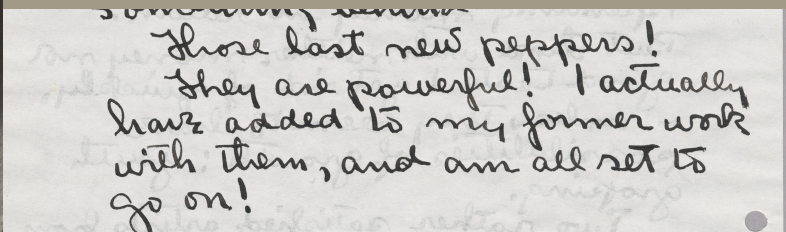 something
Those last new peppers!
They are powerful! I actually
have added to my former work
with them, and am all set to
go on!